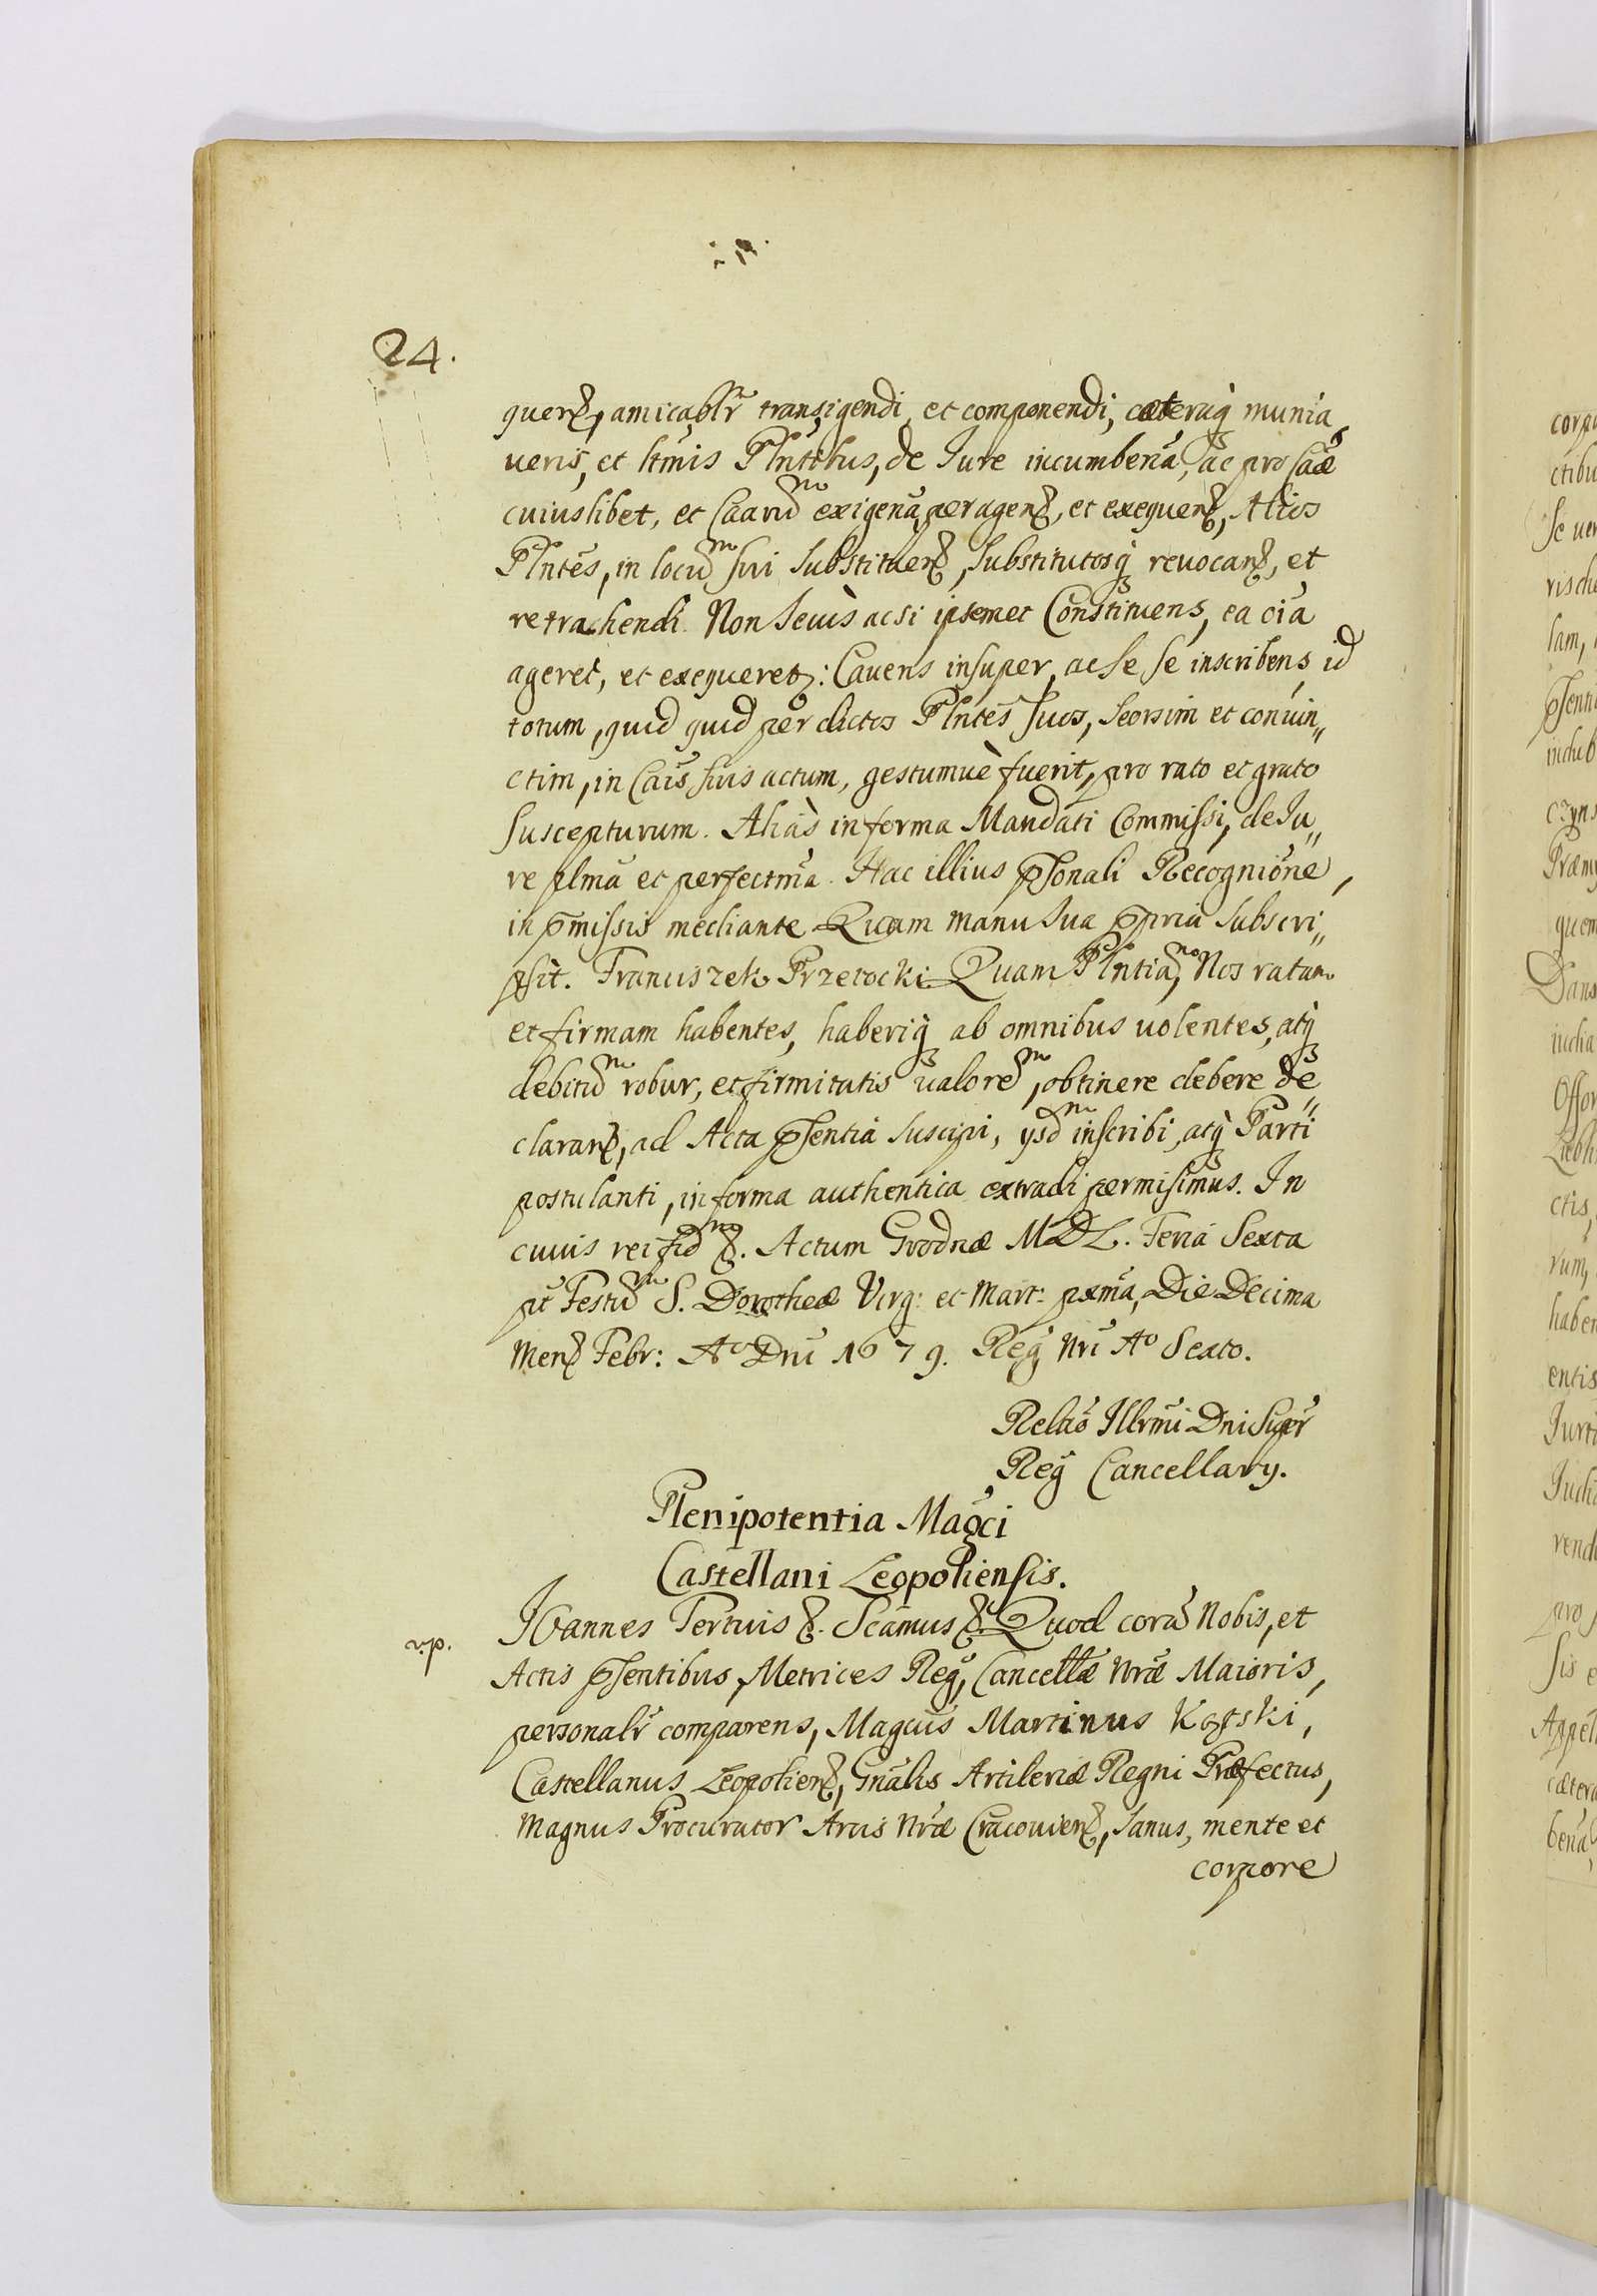 24.
querȝ, amicablr̃ transigendi, et componendi, cæteraq̃ munia
veris, et ltmis Plntibus, de Iure incumbenã, ac pro Caæ
cuiuslibet, et Caarũ exigenã peragenȝ, et exequenȝ, Alios
Plntes, in locũ sui substituenȝ, substitutosq̃ revocanȝ, et
retrahendi. Non secùs acsi ipsemet Constituens, ea oĩa
ageret, et exequeretȝ: Cavens insuper, ac se se inscribens, id
totum, quid quid per dictos Plntes suos, seorsim et coniun„
ctim, in Caĩs suis actum, gestumuè fuerit, pro rato et grato
suscepturum. Aliàs in forma Mandati Commissi, de Iu„
re plmã et perfectmã. Hac illius p̃sonali Recognione,
in p̃missis mediante. Quam manu sua p̃pria subscri„
psit. Franciszek Przetocki. Quam Plntiã, Nos ratam
et firmam habentes, haberiq̃ ab omnibus uolentes, atq̃
debitũ robur, et firmitatis ualorẽ, obtinere debere de„
claranȝ, ad Acta p̃sentia suscipi, ijsdm inscribi, atq̃ Parti
postulanti, in forma authentica extradi permisimus. In
cuius rei fid ȝ. Actum Grodnæ MDL. Feria Sexta
pt̃ Festũ S. Dorotheæ Virg: et Mart: pxmã, Die Decima
Menȝ Febr: Aº Dni 1679. Reg̃ Nri Aº Sexto.
Reltio Illrmi Dni Supr̃
Reg̃ Cancellarij.
Plenipotentia Magci
Castellani Leopoliensis.
v.p.
Ioannes Tertius ȝ. Scamus ȝ. Quod corã Nobis, et
Actis p̃sentibus, Metrices Reg̃, Cancellæ Nræ Maioris,
personalr̃ comparens, Magcus Martinus Kątski,
Castellanus Leopolienȝ, Gnalis Artileriæ Regni Præfectus,
Magnus Procurator Arcis Nræ Cracovienȝ, sanus, mente et
corpore